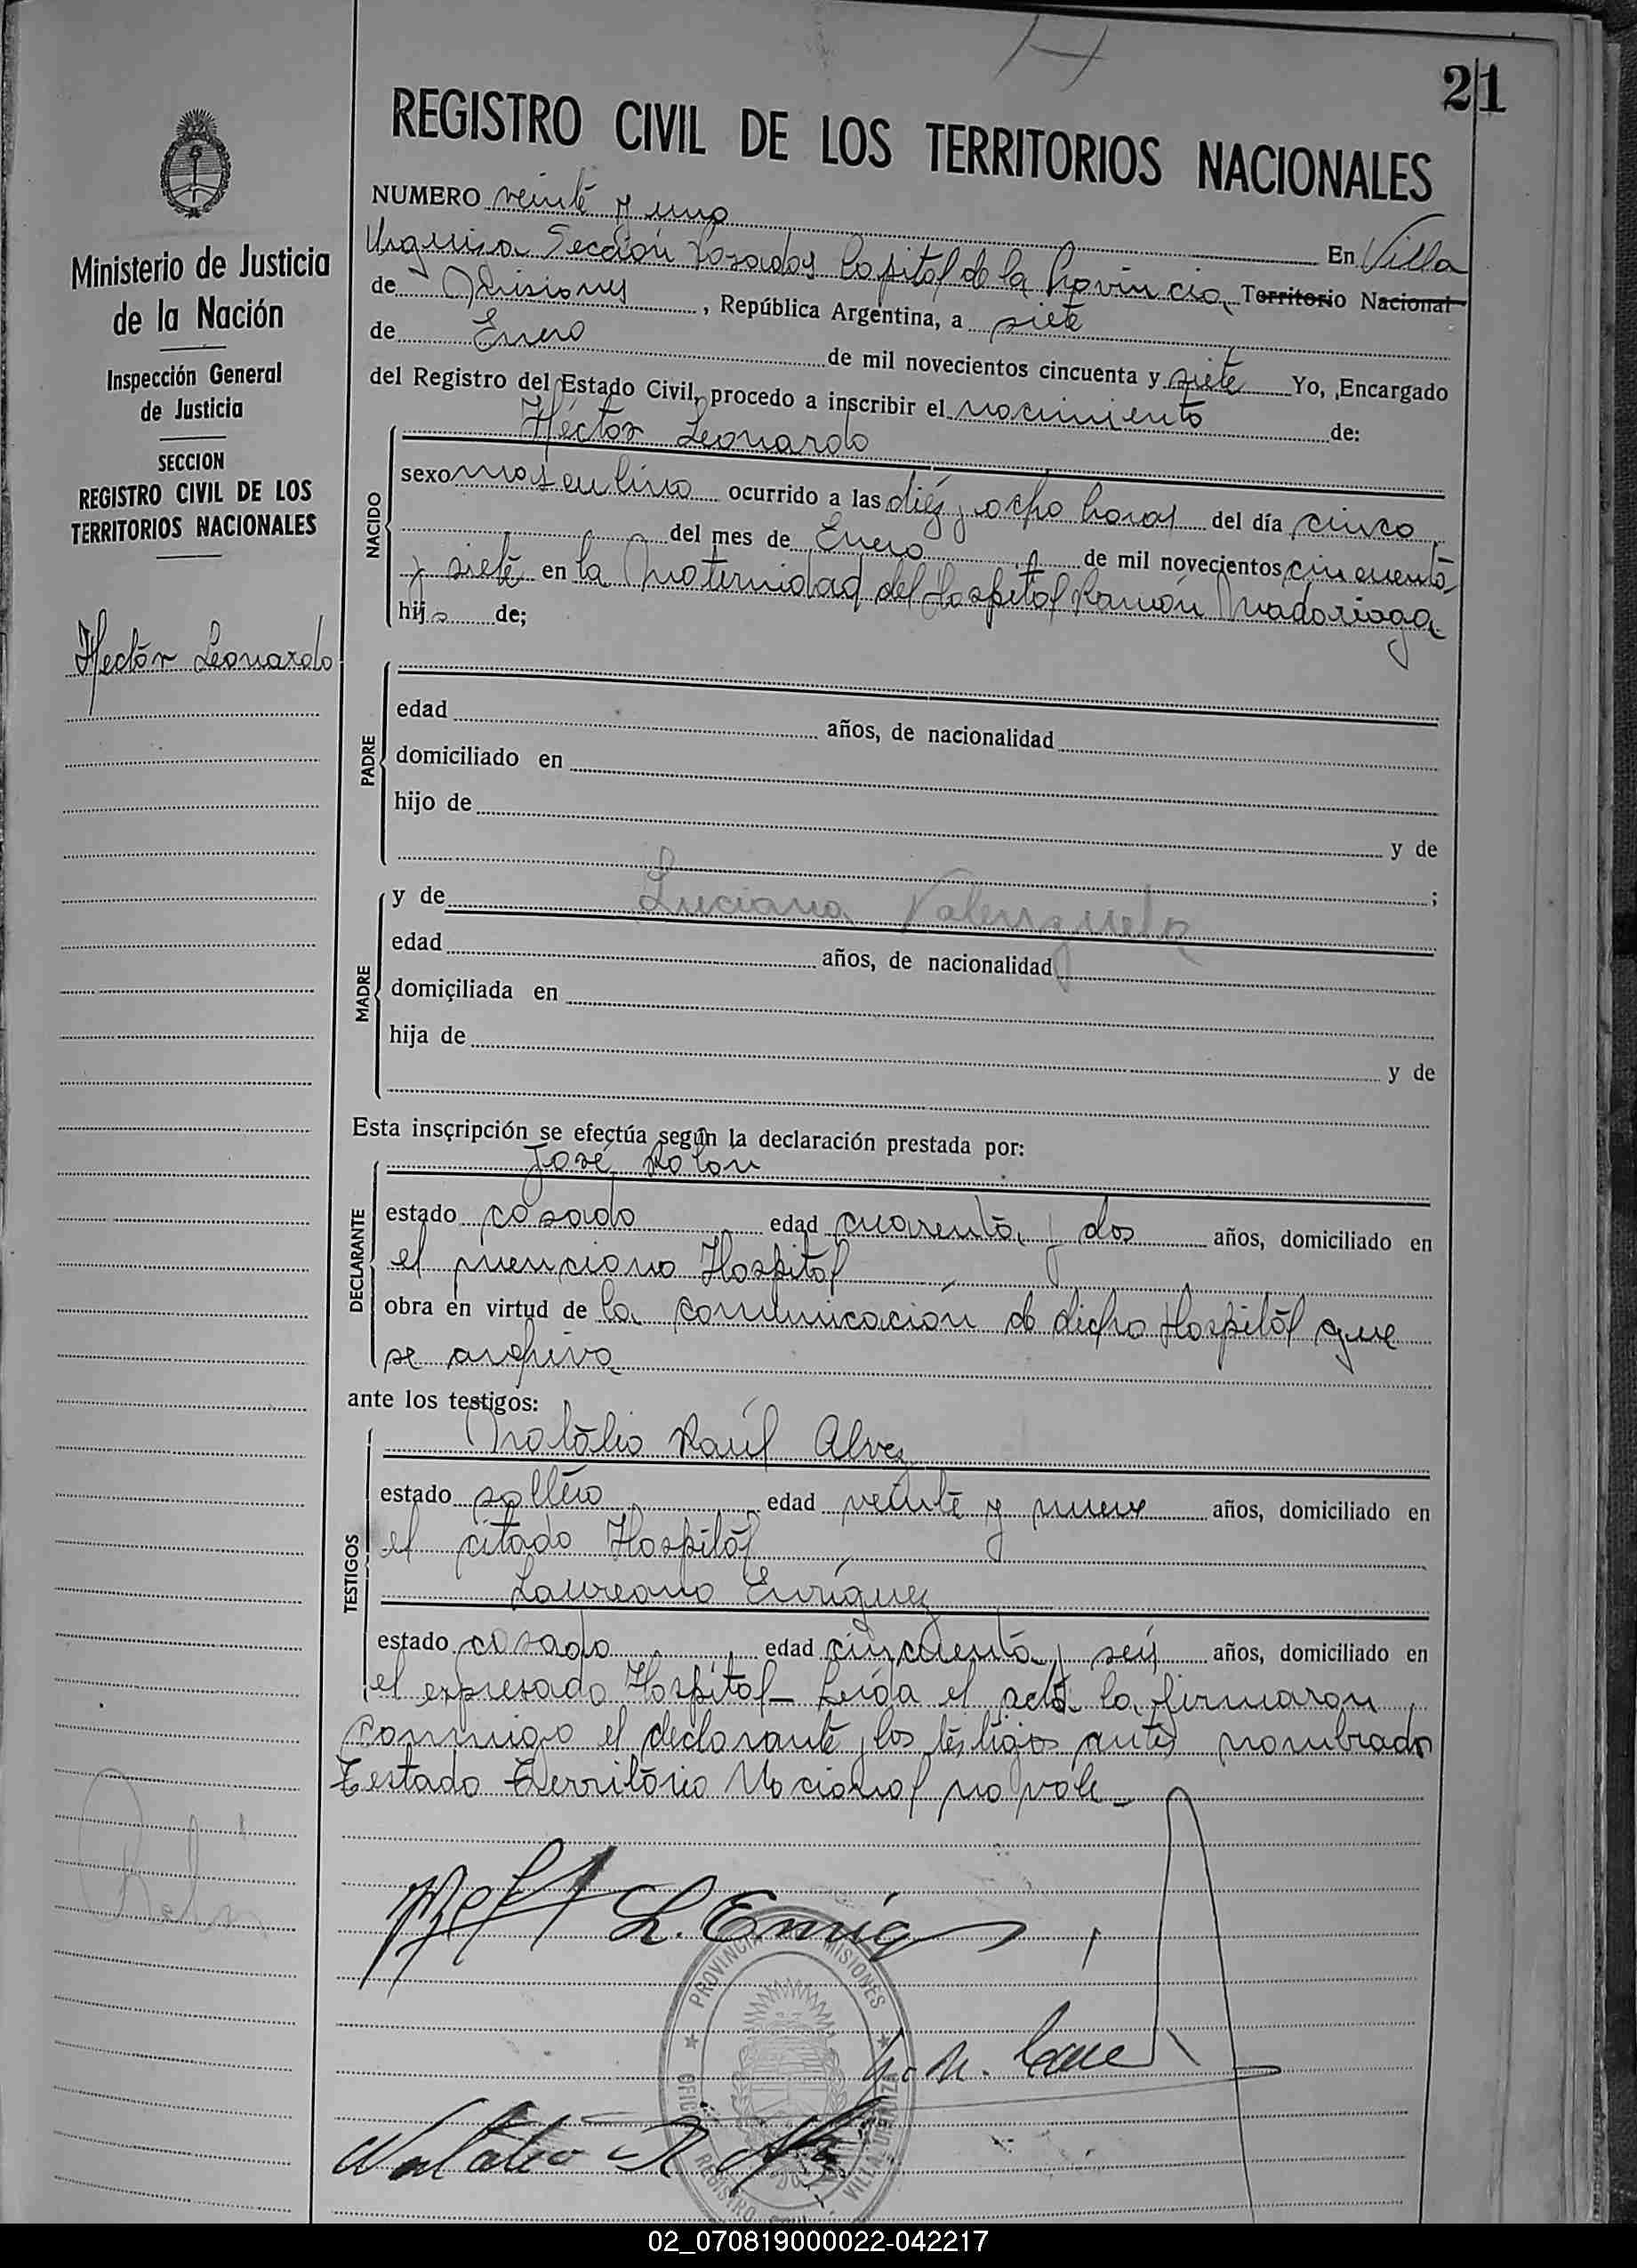 21
REGISTRO CIVIL DE LOS TERRITORIOS NACIONALES
Ministerio de Justicia
de la Nación
Inspección General
de Justicia
SECCION
REGISTRO CIVIL DE LOS
TERRITORIOS NACIONALES
Hectór Leonardo
NUMERO veinte y uno En Villa
Urquiza Sección Posadas Capital de la Provincia Territorio Nacional
de Misiones, República Argentina, a siete
de Enero de mil novecientos cincuenta y siete Yo, Encargado
del Registro del Estado Civil, procedo a inscribir el nacimiento de:
Héctor Leonardo
NACIDO
sexo masculino ocurrido a las diez y ocho horas del día cinco
del mes de Enero de mil novecientos cincuenta
y siete en la Maternidad del Hospital Ramón Madariaga
hijo de;
PADRE
edad años, de nacionalidad
domiciliado en
hijo de y de
;
MADRE
y de Luciana Valenzuela
edad años, de nacionalidad
domiciliada en
hija de y de
Esta inscripción se efectúa según la declaración prestada por:
José Rolon
DECLARANTE
estado casado edad cuarenta y dos años, domiciliado en
el menciono Hospital
obra en virtud de la comunicación de dicho Hospital que
se archiva
ante los testigos:
Natalio Raúl Alvez
TESTIGOS
estado soltero edad veinte y nueve años, domiciliado en
el citado Hospital
Laureano Enríquez
estado casado edad cincuenta y seis años, domiciliado en
el expresado Hospital_ Leída el acta la firmaron
conmigo el declarante y los testigos antes nombrado
Testado Territorio Nacional no vale_
L. Enriq
Natalio R
PROVINCIA MISIONES
REGISTRO
02_070819000022-042217